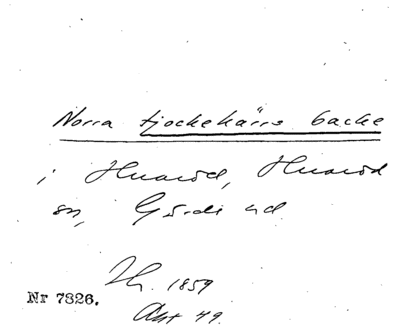 Norra tjockekärrs backe
i Huaröd, Huaröd
sn, Gärds hd
Lh. 1859
Akt 49.
Nr 7326.